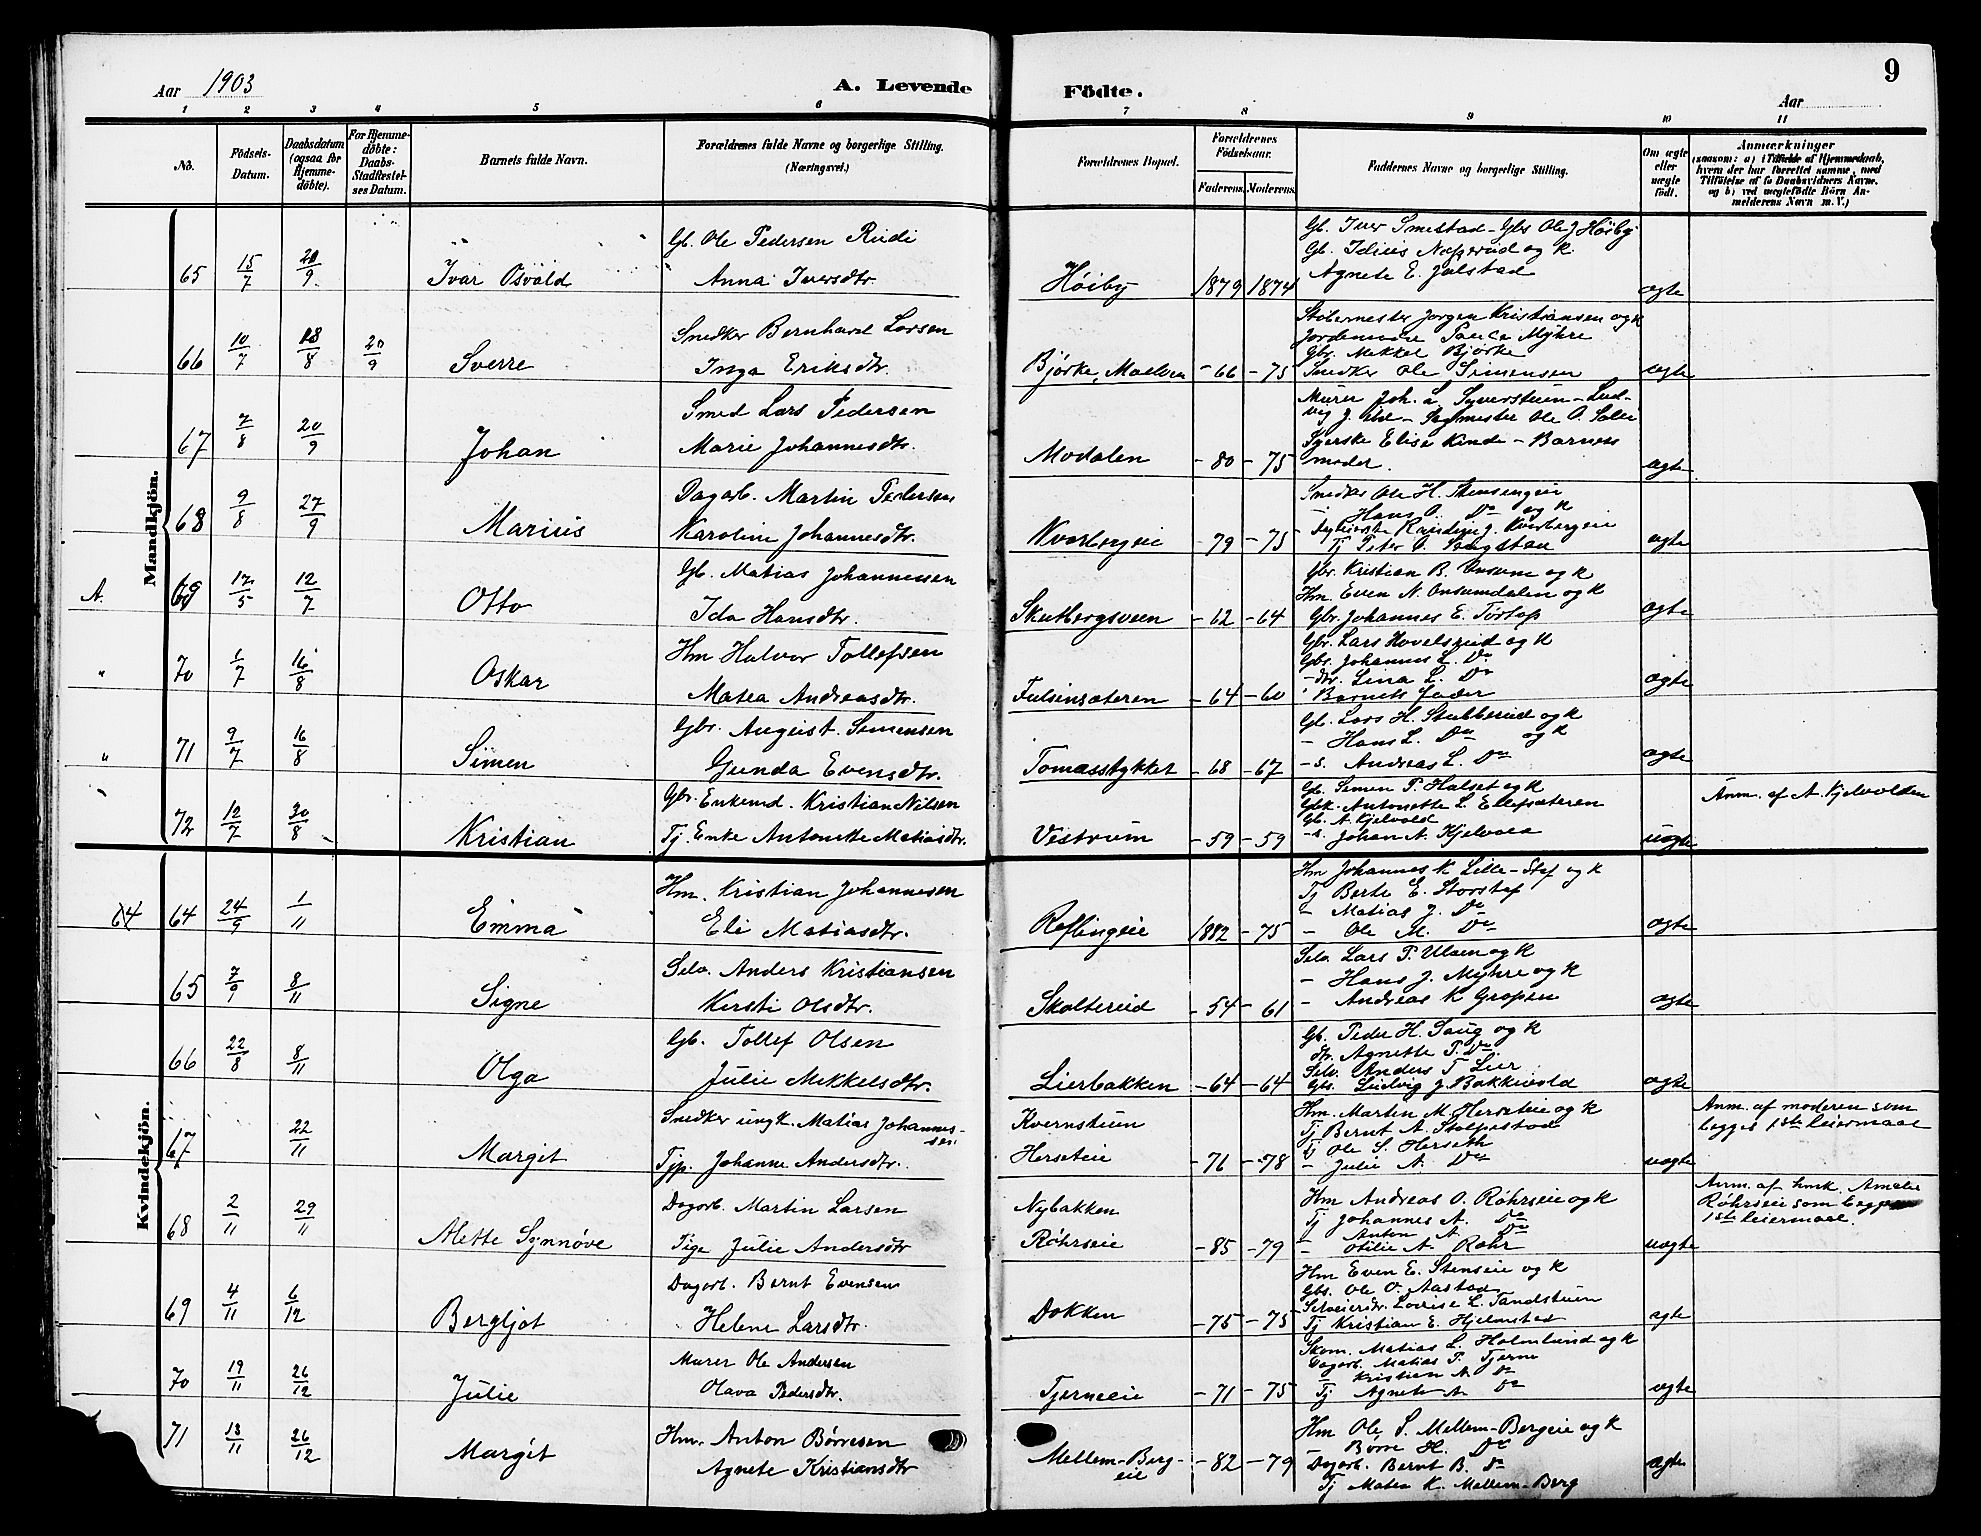 Aar 1903
A. Levende
Födte.
9
Aar
1 2 3 4 5 6 7 8 9 10 11
No.
Födsels-Datum.
Daabsdatum (ogsaa for Hjemme-döbte).
For Hjemme-döbte: Daabs-Stadfestel-ses Datum.
Barnets fulde Navn.
Forældrenes fulde Navne og borgerlige Stilling. (Næringsvei.)
Forældrenes Bopæl.
Forældrenes Födselsaar.
Faderens. Moderens.
Faddernes Navne og borgerlige Stilling.
Om ægte eller uægte födt.
Anmærkninger
(saasom: a) i Tilfælde af Hjemmedaab, hvem der har forrettet samme, med Tilföielse af to Daabsvidners Navne, og b) ved uægtefödte Börn An-melderens Navn m. V.)
Mandkjön.
65 15/7 20/9 Ivar Osvald
Gb. Ole Pedersen Rudi
Anna Iversdtr.
Høiby 1879 1874
Gb. Iver Smestad - Gbs Ole J Høiby
Gb. Idius Nafserud og k
Agnete E. Jølstad
ægte
66 10/7 18/8 20/9 Sverre
Snedker Bernhard Larsen
Inga Eriksdtr.
Bjørke, Moelven - 66 - 75
Stobermester Jørgen Kristiansen og k
Jordemoder Paula Myhre
Gbr. Mikkel Bjørke
Snedker Ole Simensen
ægte
67 7/8 20/9 Johan
Smed Lars Pedersen
Marie Johannesdtr.
Modalen - 80 - 75
Murer Joh. L. Syverstuen - Lud-
vig J. - Sagmester Ole O.
Syerske Elise Kinde - Barnets
moder.
ægte
68 9/8 27/9 Marius
Dagarb. Martin Pedersen
Karoline Johannesdtr.
Kvarbergeie - 79 - 75
Snedker Ole H. Stensengeie
Hans O. Do og k
Kvarbergeie
Tj Peter O.
ægte
A. 69 17/5 12/7 Otto
Gb. Matias Johannessen
Ida Hansdtr.
Skutbergsveen - 62 - 64
Gbr. Kristian B. Onsum og k
Hm. Even N. Onsumdalen og k
Gbr. Johannes E. Tørtop
ægte
" 70 1/7 16/8 Oskar
Hm Halvor Tollefsen
Matea Andreasdtr.
Fulsinsæteren - 64 - 60
Gbr. Lars Hovelsrud og k
Gbs. Johannes L. Do
- dtr. Lina L. Do
Barnets fader
ægte
" 71 9/7 16/8 Simen
Gbr. August Simensen
Gunda Evensdtr.
Tomasstykket - 68 - 67
Gb. Lars H. Stubberud og k
- Hans L. Do og k
- s. Andreas L. Do
ægte
72 12/7 30/8 Kristian
Gbr. Enkemd. Kristian Nilsen
Tj. Enke Antonette Matiasdtr.
Vestrum - 59 - 59
Gb. Simen P. Halset og k
Gbk. Antonette L. Ellefsæteren
Gb. A. Kjelvold
- s. Johan A. Kjelvold
uægte
Anm. af A. Kjelvolden
Kvindekjön.
64 64 24/9 1/11 Emma
Hm. Kristian Johannesen
Eli Matiasdtr.
Røflingeie 1882 - 75
Hm Johannes K Lille-Staf og k
Tj Berte E. Storstaf
- Matias J. Do
- Ole M. Do
ægte
65 7/9 8/11 Signe
Selv. Anders Kristiansen
Kersti Olsdtr.
Skolterud - 54 - 61
Selv. Lars P. Ulsen og k
- Hans J. Myhre og k
- Andreas K Gropen
ægte
66 22/8 8/11 Olga
Gb. Tollef Olsen
Julie Mikkelsdtr.
Lierbakken - 64 - 64
Gb. Peder H. Saug og k
dtr. Agnette P. Do.
Selv. Anders T Lier
Gbs. Ludvig J. Bakkevold
ægte
67 22/11 Margit
Snedker ungk. Matias Johannes-
sen
Tjp. Johanne Andersdtr.
Kvernstuen
Herseteie - 76 - 78
Hm. Martin M. Herseteie og k
Tj Bernt A. Stolpestad
Tj Ole S. Herseth
- Julie A. Do
uægte
Anm. af moderen som
begges 1ste leiermaal
68 2/11 29/11 Alette Synnøve
Dagarb. Martin Larsen
Pige Julie Andersdtr
Nybakken
Røhrseie - 85 - 79
Hm Andreas O. Røhrseie og k
Tj Johannes A. Do
- Anton A Do
- Otilie A. Røhr
uægte
Anm. af hmk. Amalie
Røhrseie som begges
1ste leiermaal.
69 4/11 6/12 Bergljot
Dagarb. Bernt Evensen
Helene Larsdtr.
Dokken - 75 - 75
Hm Even E. Stenseie og k
Gbs. Ole O. Aastad
Selveierdr. Lovise L. Sandstuen
Tj Kristian E. Hjelmstad
ægte
70 19/11 26/12 Julie
Murer Ole Andersen
Olava Pedersdtr.
Tjerneeie - 71 - 75
Skom. Matias L. Holmlund og k
Dagarb. Matias P. Tjerne
- Kristian A. Do
Tj Agnete A. Do
ægte
71 13/11 26/12 Margit
Hm. Anton Børresen
Agnete Kristiansdtr
Mellem-Berg-
eie - 82 - 79
Hm Ole S. Mellem-Bergeie og k
- Børre H. Do
Dagarb. Bernt B. Do
Tj Matea K. Mellem-Berg
ægte